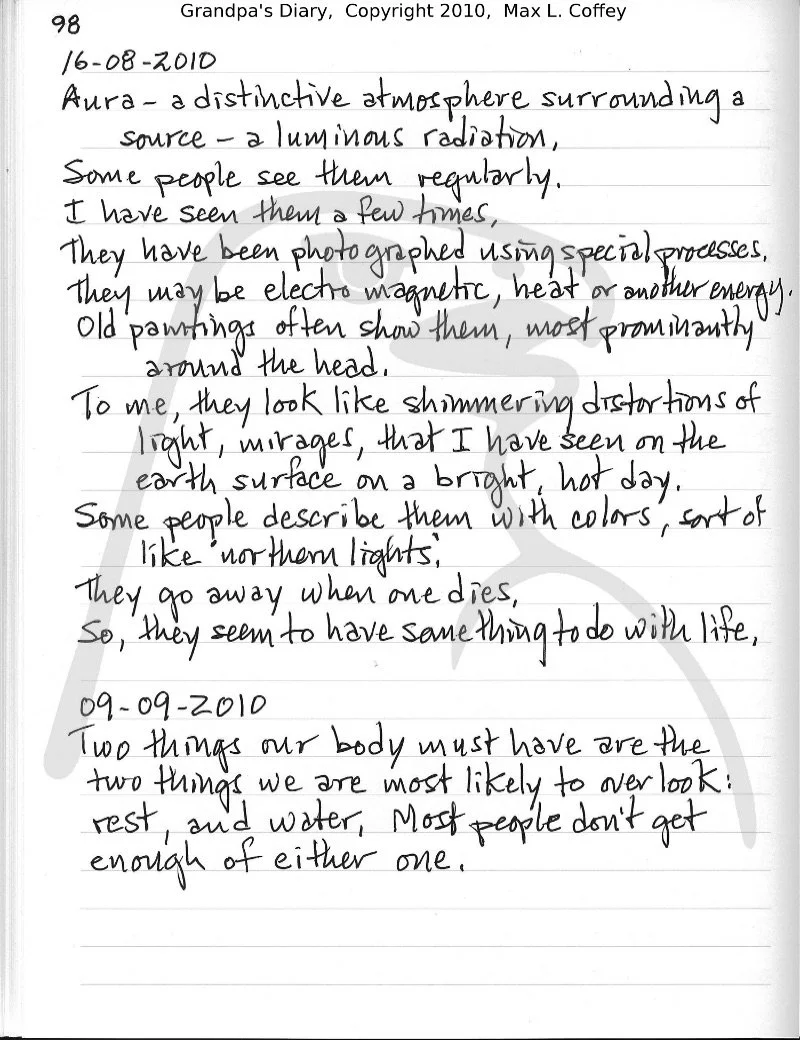 Grandpa's Diary, Copyright 2010, Max L. Coffey
98
16-08-2010
Aura – a distinctive atmosphere surrounding a
source – a luminous radiation,
Some people see them regularly.
I have seen them a few times,
They have been photographed using special processes.
They may be electro magnetic, heat or another energy.
Old paintings often show them, most prominantly
around the head.
To me, they look like shimmering distortions of
light, mirages, that I have seen on the
earth surface on a bright, hot day.
Some people describe them with colors, sort of
like 'northern lights'.
They go away when one dies,
So, they seem to have something to do with life,
09-09-2010
Two things our body must have are the
two things we are most likely to over look:
rest, and water, Most people don't get
enough of either one.